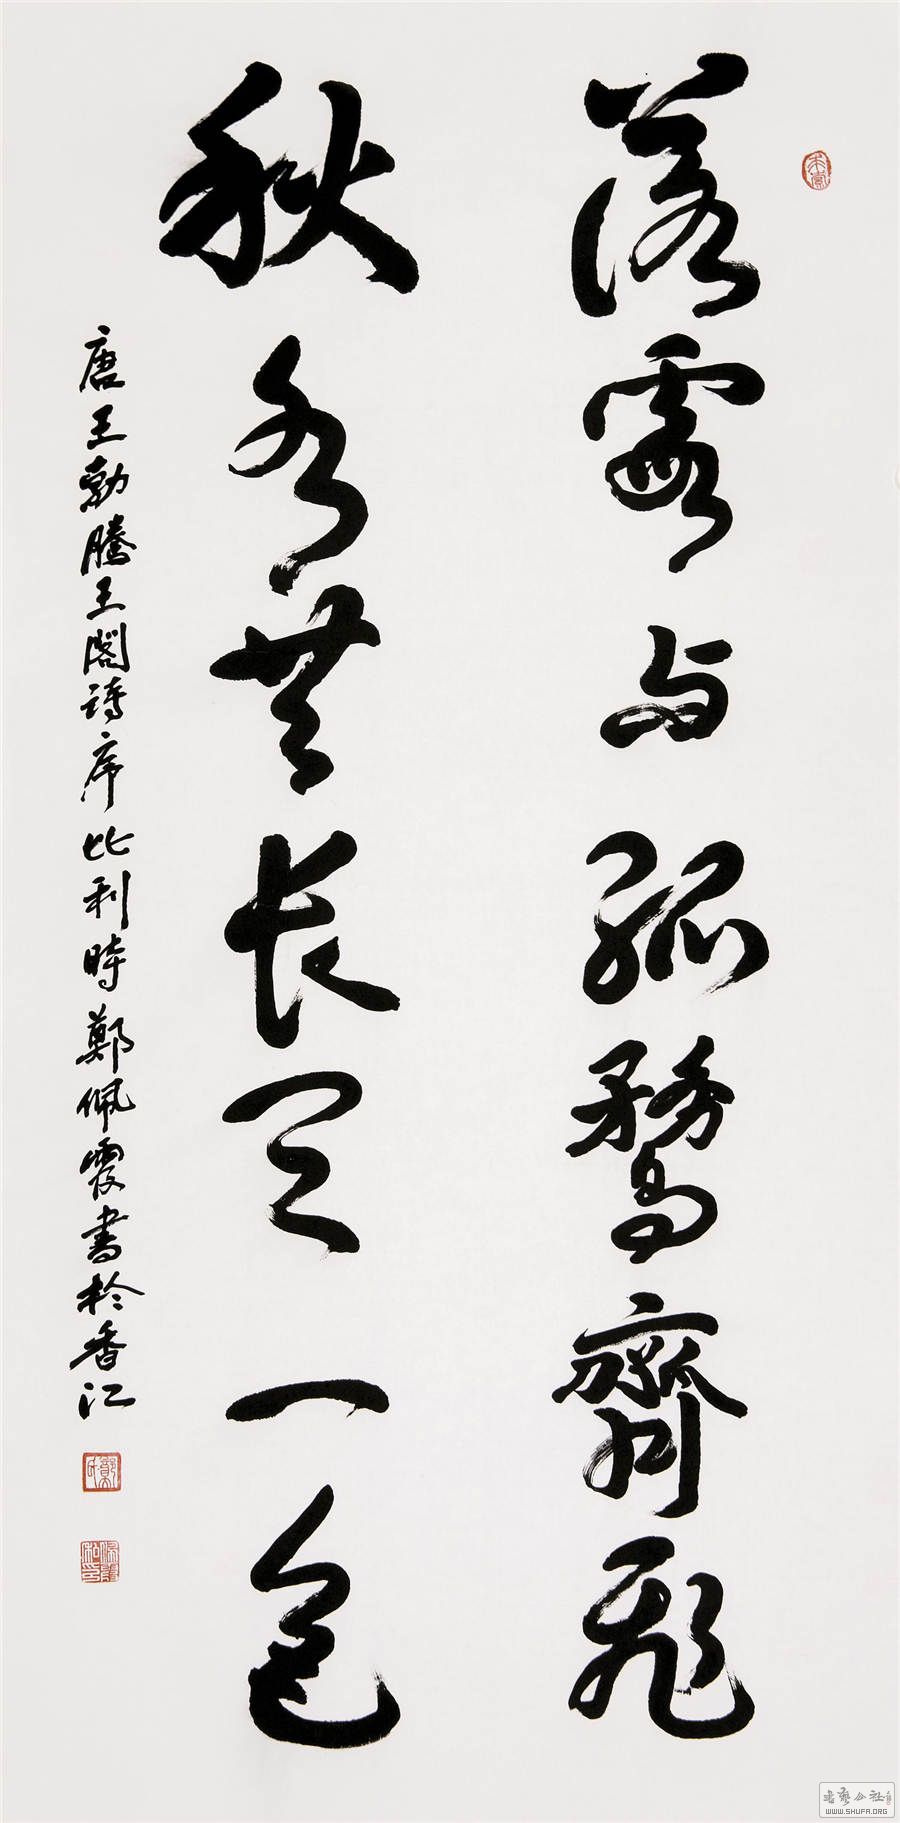 落霞与孤鹜齊飛
秋水共長天一色
唐王勃滕王閣詩序比利時鄭佩霞書於香江
書藝公社
WWW.SHUFA.ORG